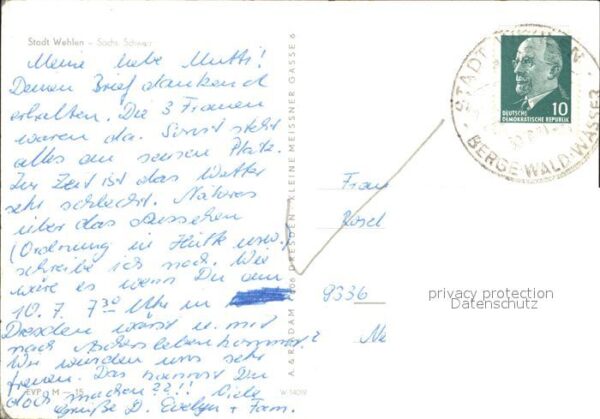 Stadt Wehlen – Sächs. Schweiz
Meine liebe Mutti!
Deinen Brief dankend
erhalten. Die 3 Frauen
waren da. Sonst steht
alles an seinem Platz.
Zur Zeit ist das Wetter
sehr schlecht. Näheres
über das Aussehen
(Ordnung in Hütte usw.
schreibe ich noch. Wie
wäre es wenn Du am
10.7. 7³⁰ Uhr in
Dresden wärst u. mit
nach Aschersleben kommst?
Wir würden uns sehr
freuen. Das kannst Du
doch machen??!! Viele
Grüße D. Evelyn + Fam.
EVP M — 15
W 14019
A. & R. ADAM DRESDEN KLEINE MEISSNER GASSE 6
STADT WEHLEN
BERGE·WALD·WASSER
10
DEUTSCHE
DEMOKRATISCHE REPUBLIK
Frau
Rosel
9336
privacy protection
Datenschutz